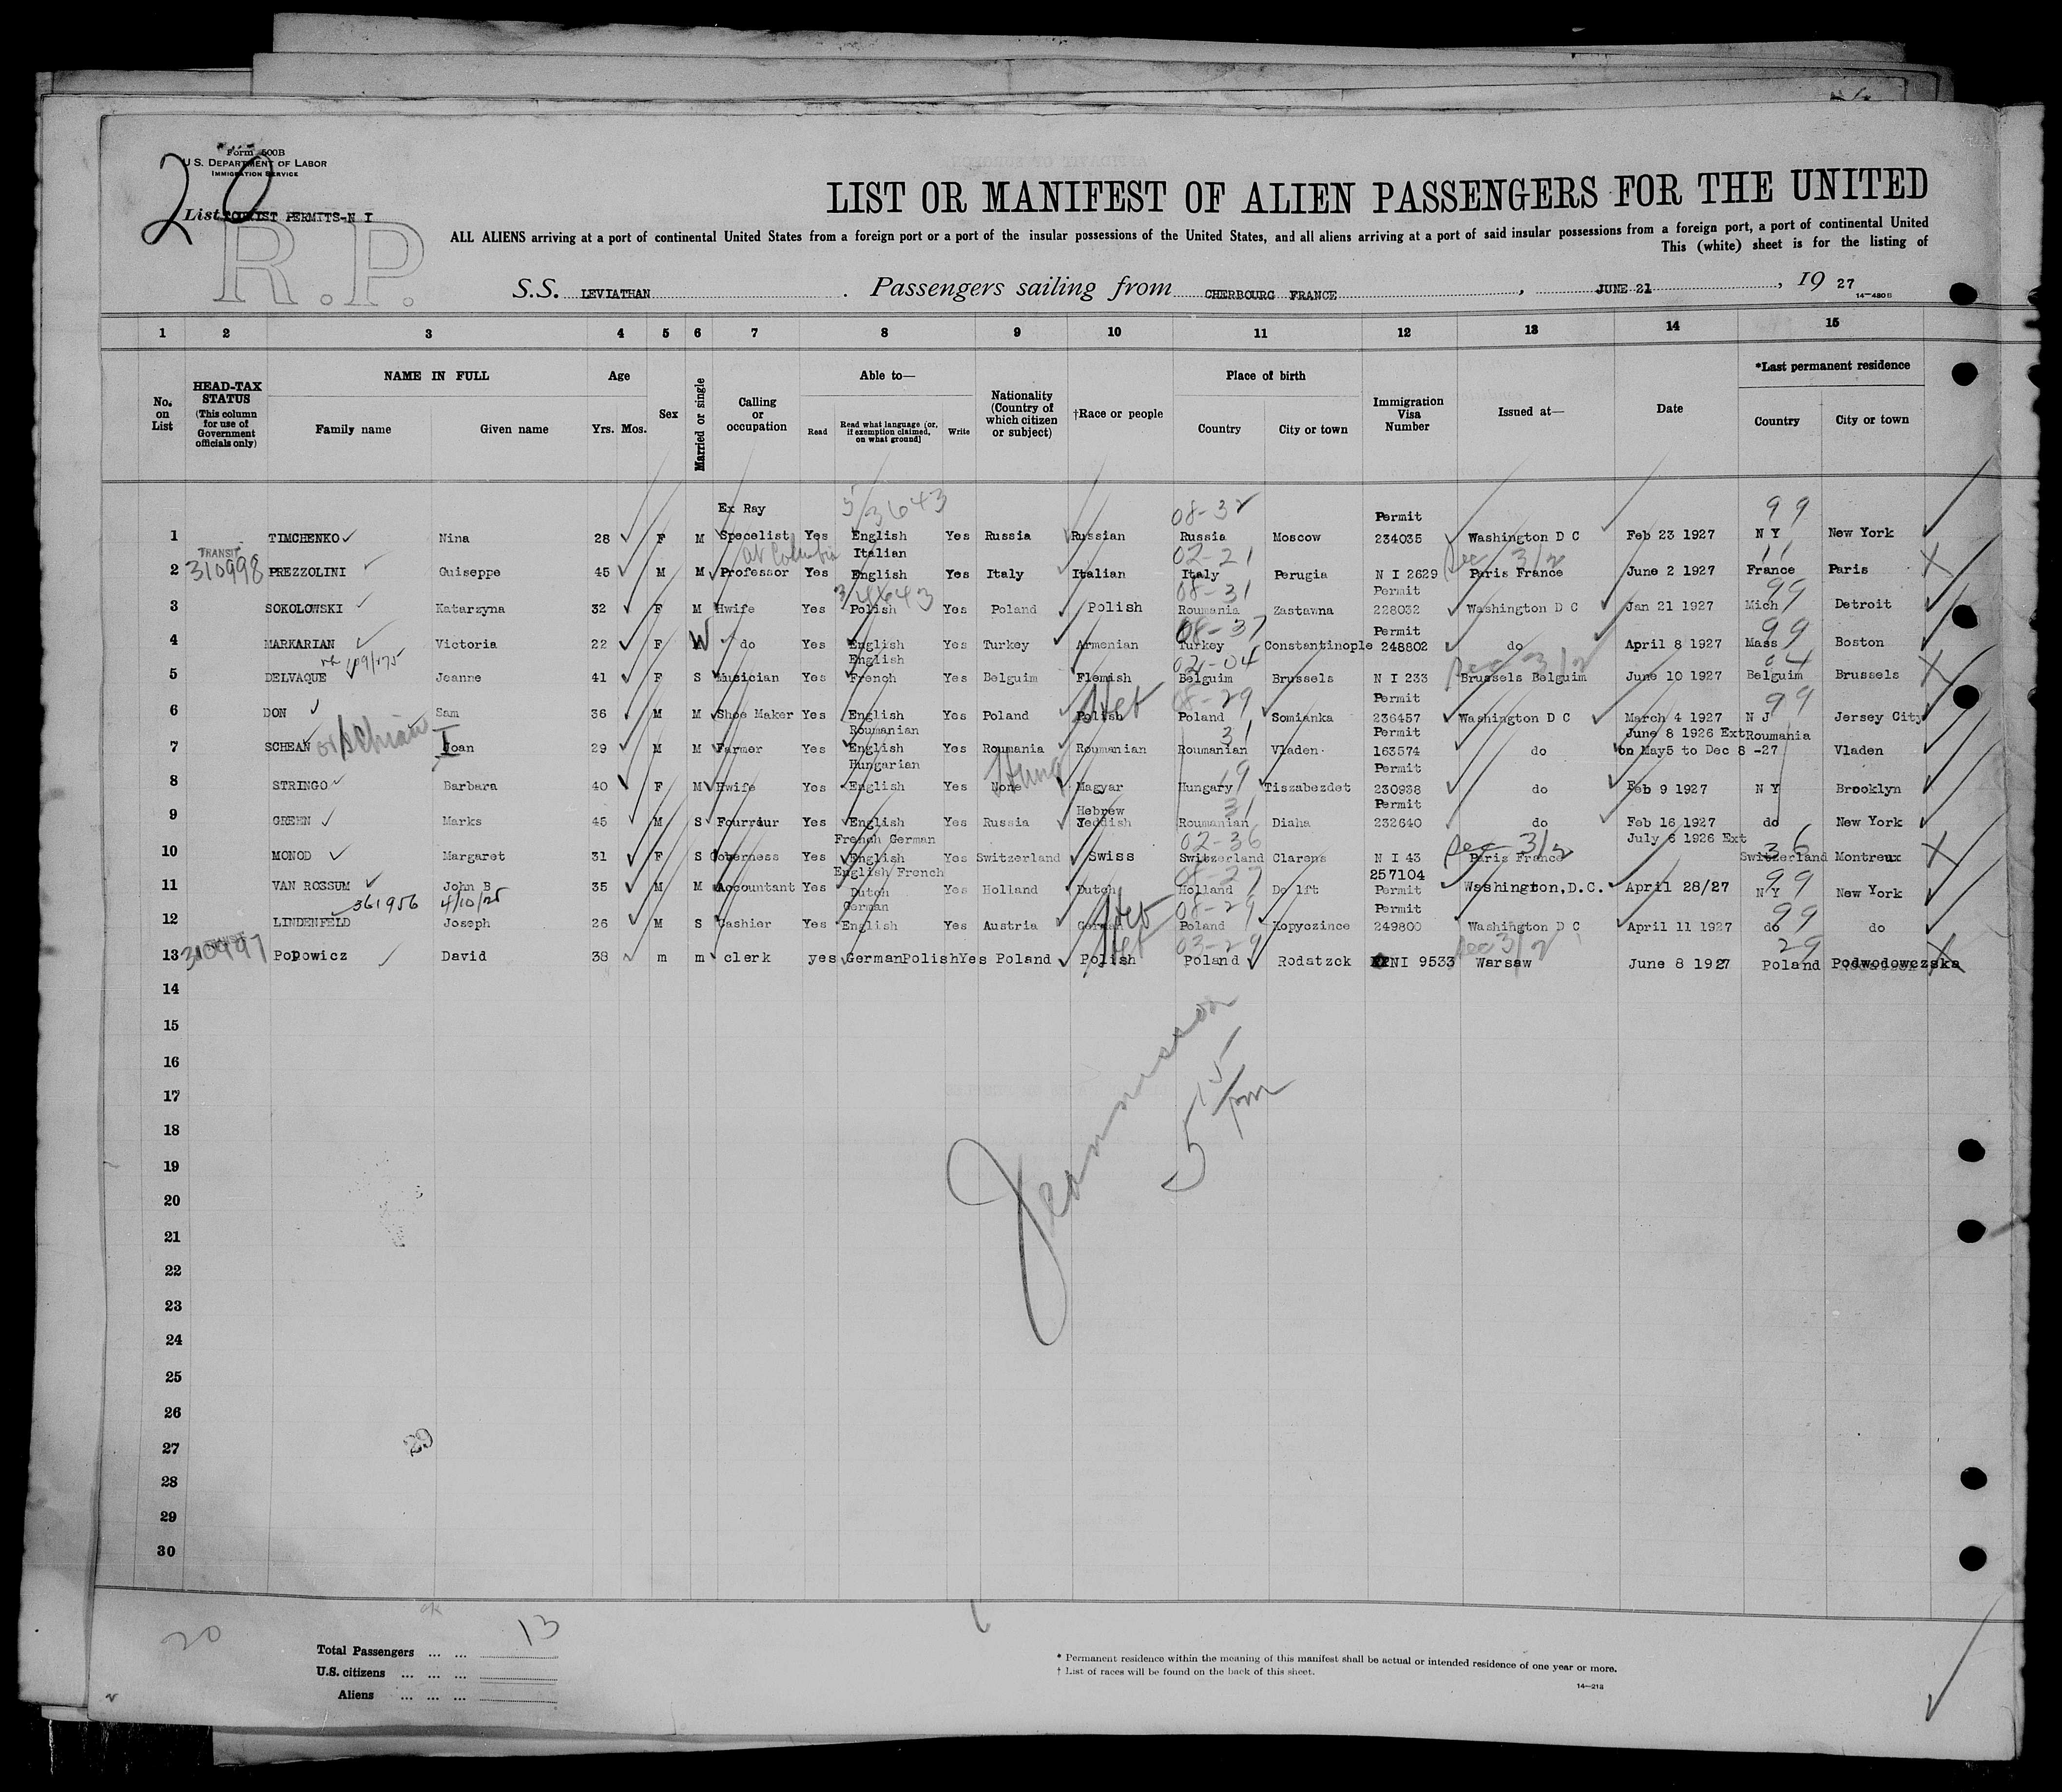 Form 500B
U.S. DEPARTMENT OF LABOR
IMMIGRATION SERVICE
20
List TOURIST PERMITS-N I
R.P.
LIST OR MANIFEST OF ALIEN PASSENGERS FOR THE UNITED
ALL ALIENS arriving at a port of continental United States from a foreign port or a port of the insular possessions of the United States, and all aliens arriving at a port of said insular possessions from a foreign port, a port of continental United
This (white) sheet is for the listing of
S.S. LEVIATHAN. Passengers sailing from CHERBOURG FRANCE, JUNE 21, 19 27
14-480B
1 2 3 4 5 6 7 8 9 10 11 12 13 14 15
No. on List
HEAD-TAX STATUS (This column for use of Government officials only)
NAME IN FULL Family name Given name
Age Yrs. Mos.
Sex
Married or single
Calling or occupation
Able to— Read Read what language [or, if exemption claimed, on what ground] Write
Nationality (Country of which citizen or subject)
†Race or people
Place of birth Country City or town
Immigration Visa Number
Issued at—
Date
*Last permanent residence Country City or town
Ex Ray 5/3643 08-32 Permit 99
1 TIMCHENKO Nina 28 F M Specelist Yes English Yes Russia Russian Russia Moscow 234035 Washington D C Feb 23 1927 N Y New York
TRANSIT at Columbia Italian 02-21 Sec 3/2 11
2 310998 PREZZOLINI Guiseppe 45 M M Professor Yes English Yes Italy Italian Italy Perugia N I 2629 Paris France June 2 1927 France Paris
3/4643 08-31 Permit 99
3 SOKOLOWSKI Katarzyna 32 F M Hwife Yes Polish Yes Poland Polish Roumania Zastawna 228032 Washington D C Jan 21 1927 Mich Detroit
08-37 Permit 99
4 MARKARIAN Victoria 22 F W do Yes English Yes Turkey Armenian Turkey Constantinople 248802 do April 8 1927 Mass Boston
English 02-04 Sec 3/2 04
5 DELVAQUE Jeanne 41 F S Musician Yes French Yes Belguim Flemish Belguim Brussels N I 233 Brussels Belguim June 10 1927 Belguim Brussels
Heb 08-29 Permit 99
6 DON Sam 36 M M Shoe Maker Yes English Yes Poland Polish Poland Somianka 236457 Washington D C March 4 1927 N J Jersey City
or Schian I Roumanian 31 Permit June 8 1926 Ext Roumania
7 SCHEAN Joan 29 M M Farmer Yes English Yes Roumania Roumanian Roumanian Vladen 163574 do on May5 to Dec 8 -27 Vladen
Hungarian Hung 19 Permit
8 STRINGO Barbara 40 F M Hwife Yes English Yes None Magyar Hungary Tiszabezdet 230938 do Feb 9 1927 N Y Brooklyn
Hebrew 31 Permit
9 GREEN Marks 45 M S Fourriur Yes English Yes Russia Yeddish Roumanian Diaha 232640 do Feb 16 1927 do New York
French German 02-36 Sec 3/2 July 6 1926 Ext 36
10 MONOD Margaret 31 F S Goberness Yes English Yes Switzerland Swiss Switzerland Clarens N I 43 Paris France Switzerland Montreux
English French 08-27 257104 99
11 VAN ROSSUM John B 35 M M Accountant Yes Dutch Yes Holland Dutch Holland De lft Permit Washington,D.C. April 28/27 N Y New York
361956 4/10/25 German Heb 08-29 Permit 99
12 LINDENFELD Joseph 26 M S Cashier Yes English Yes Austria German Poland Kopyczince 249800 Washington D C April 11 1927 do do
Heb 03-29 Sec 3/2 29
13 310997 Popowicz David 38 m m clerk yes German Polish Yes Poland Polish Poland Rodatzok NI 9533 Warsaw June 8 1927 Poland Podwodowczska
14
15
16
17
18
19
20
21
22
23
24
25
26
27
28
29
30
5 15/pm
29
20
13
Total Passengers ... ...
U.S. citizens ... ... ...
Aliens ... ... ...
* Permanent residence within the meaning of this manifest shall be actual or intended residence of one year or more.
† List of races will be found on the back of this sheet.
14-218